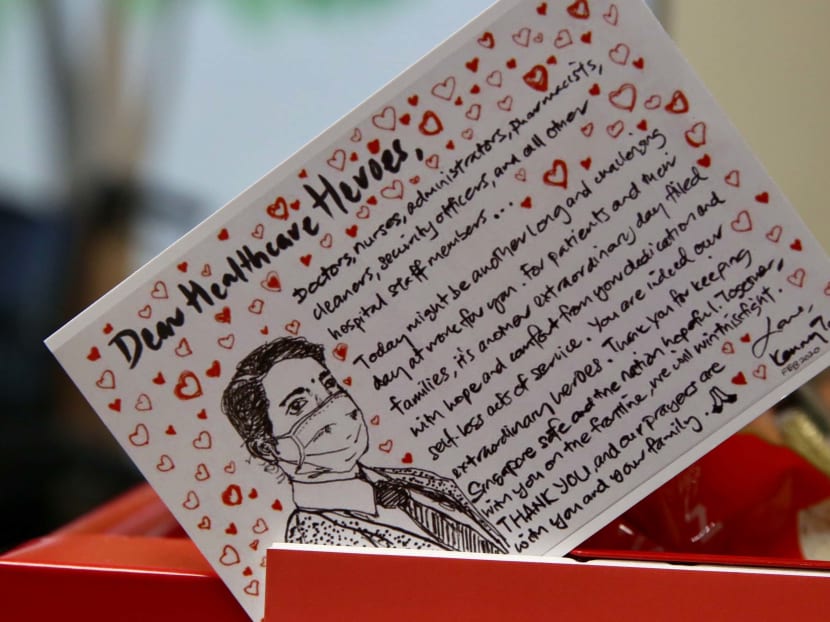 Dear Healthcare Heroes,
Doctors, nurses, administrators, pharmacists,
cleaners, security officers, and all other
hospital staff members...
Today might be another long and challenging
day at work for you. For patients and their
families, it's another extraordinary day filled
with hope and comfort from your dedication and
self-less acts of service. You are indeed our
extraordinary heroes. Thank you for keeping
Singapore safe and the nation hopeful. Together,
with you on the frontline, we will win this fight.
THANK YOU, and our prayers are
with you and your family.
Love,
Kenny T.
FEB 2020